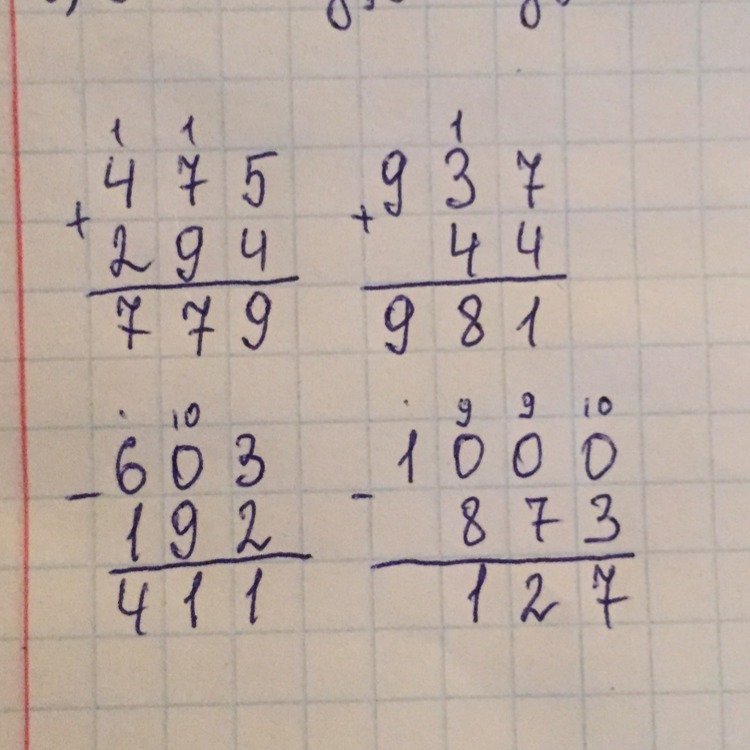 1 1
475
+
294
779
1
937
+
44
981
. 10
603
-
192
411
. 9 9 10
1000
-
873
127